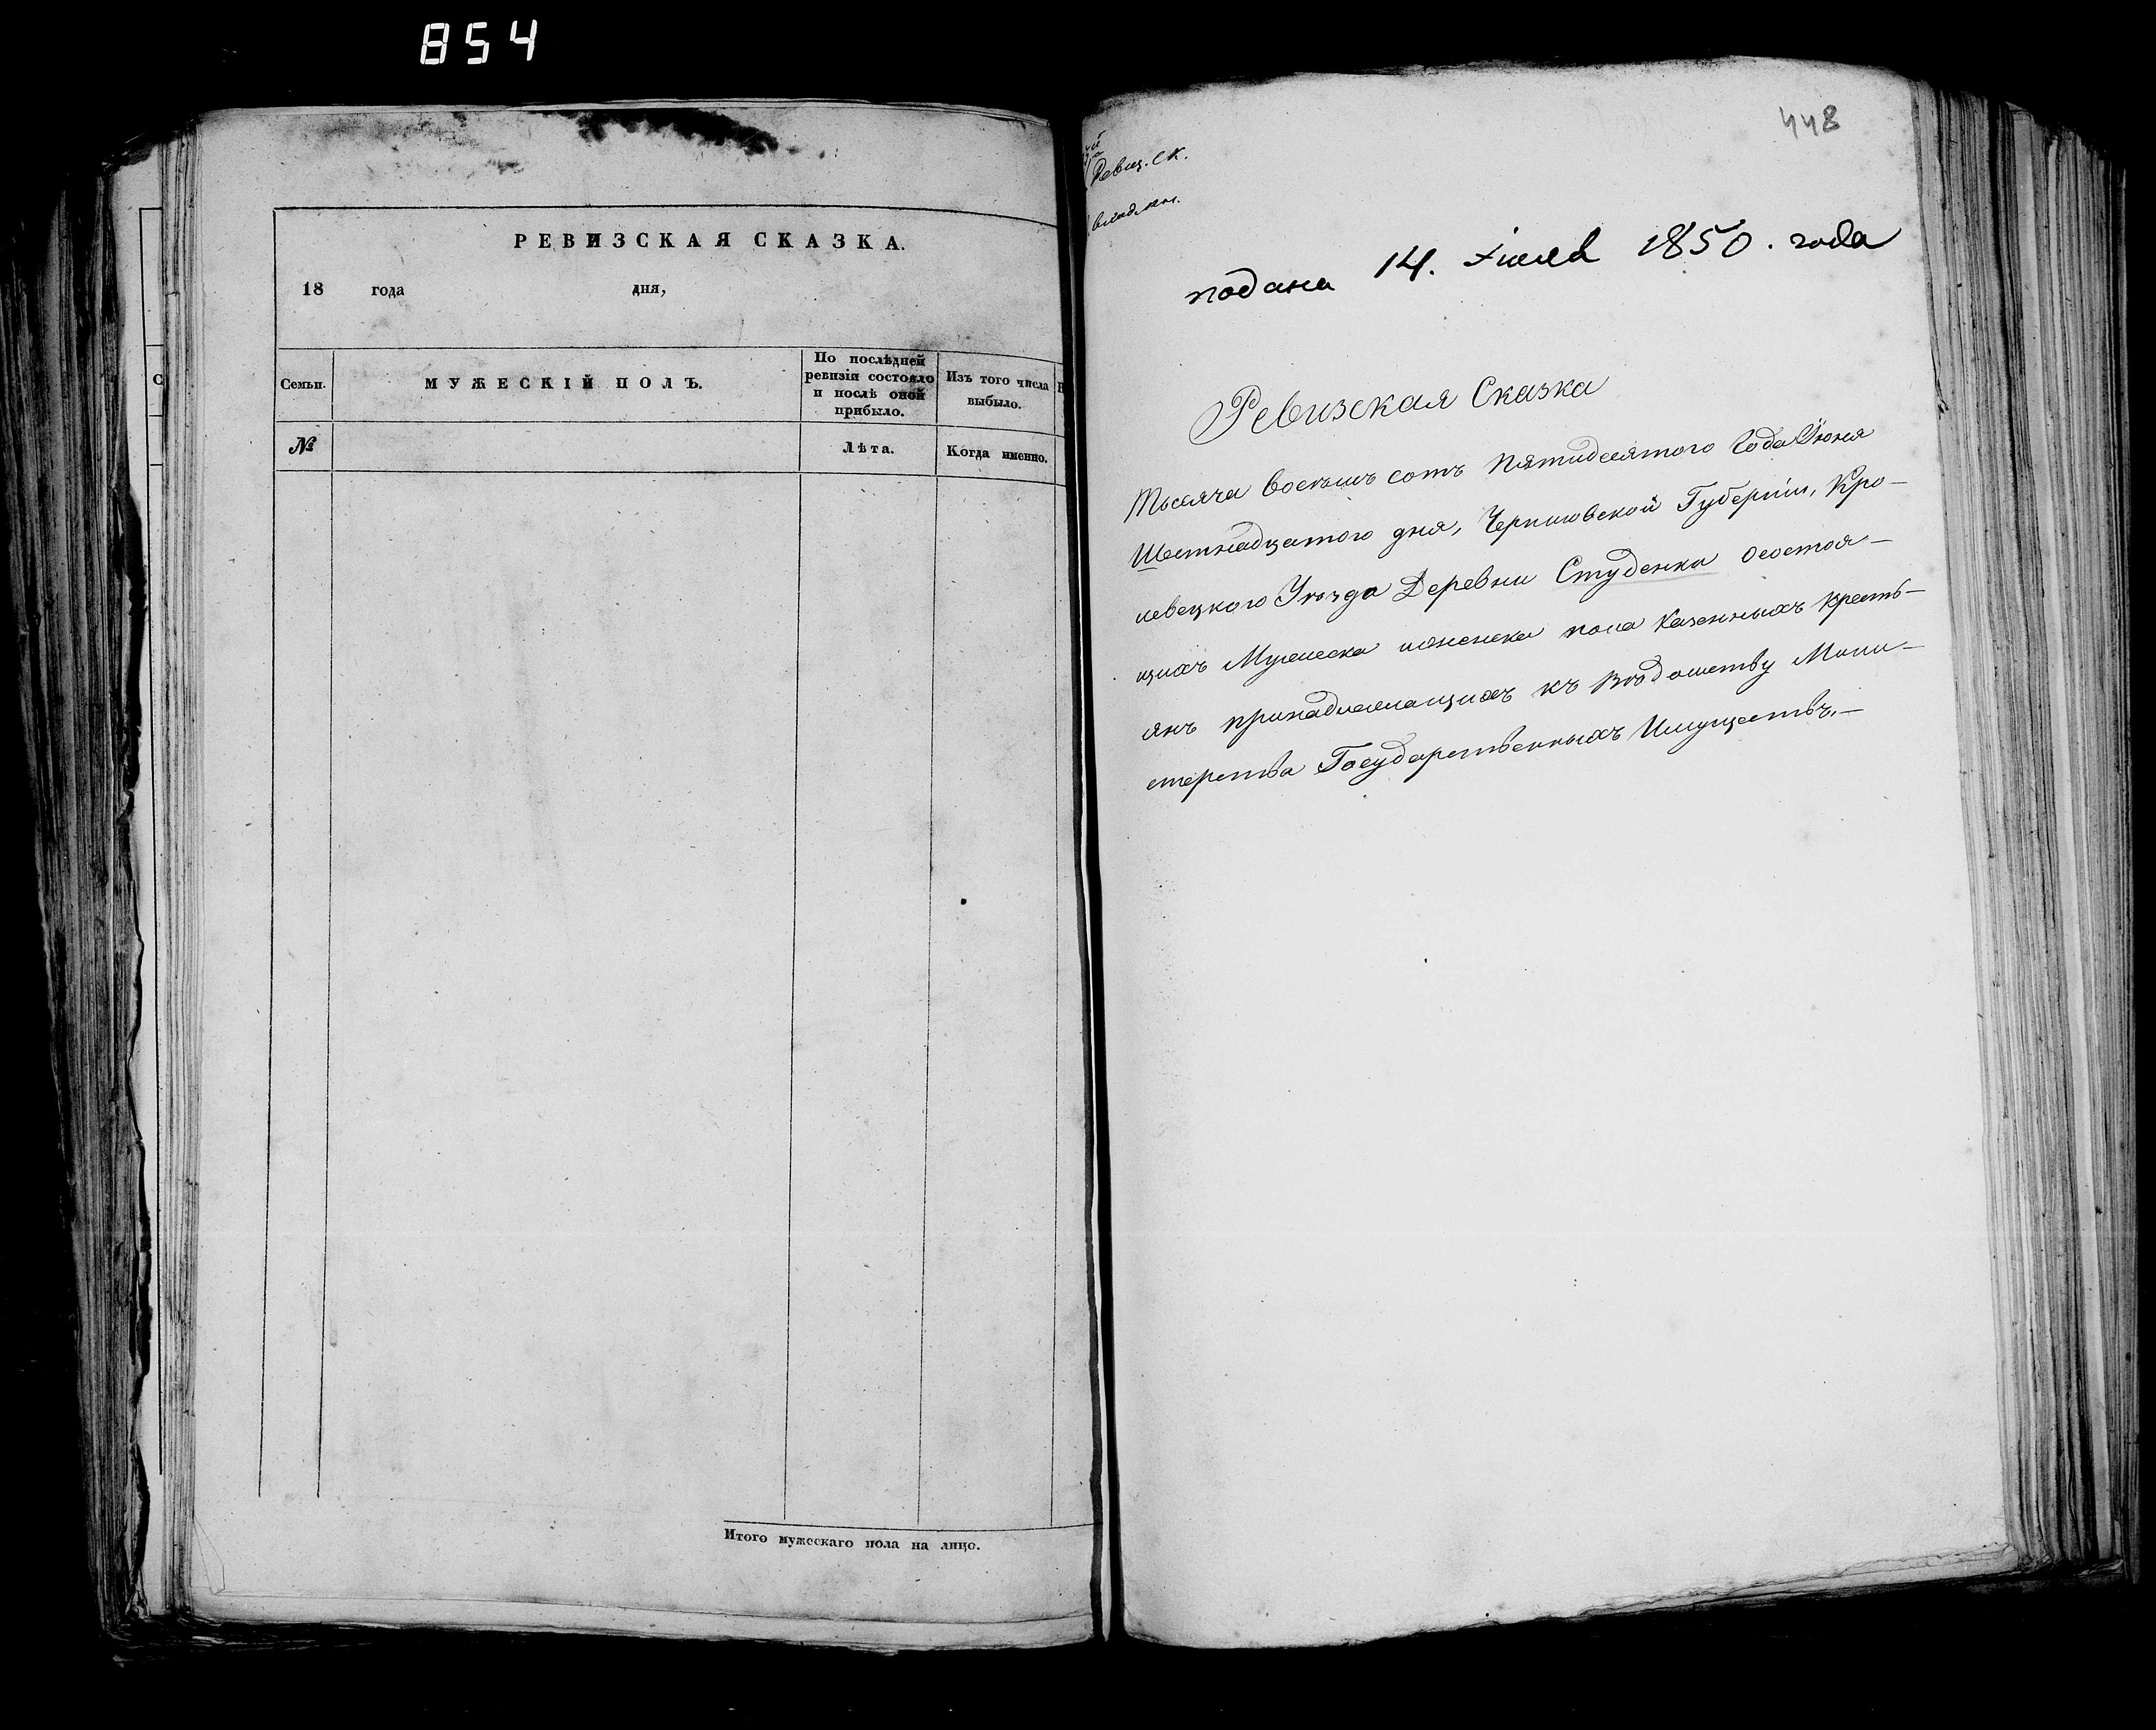 854
РЕВИЗСКАЯ СКАЗКА.
18 года дня,
Семьи.
МУЖЕСКІЙ ПОЛЪ.
По послѣдней
ревизіи состояло
и послѣ оной
прибыло.
Изъ того числа
выбыло.
№
Лѣта.
Когда именно.
Итого мужескаго пола на лицо.
448
Ревиз. Ск.
подана 14. Іюля 1850. года
Ревизская Сказка
Тысяча восемь сотъ пятидесятого Года Іюня
Шестнадцатого дня, Черниговской Губерніи, Кро-
левецкого Уѣзда Деревни Студенка о состоя-
щихъ Мужеска и женска пола казенныхъ кресть-
янъ принадлежащихъ къ вѣдомству Мини-
стерства Государственныхъ Имуществъ.—